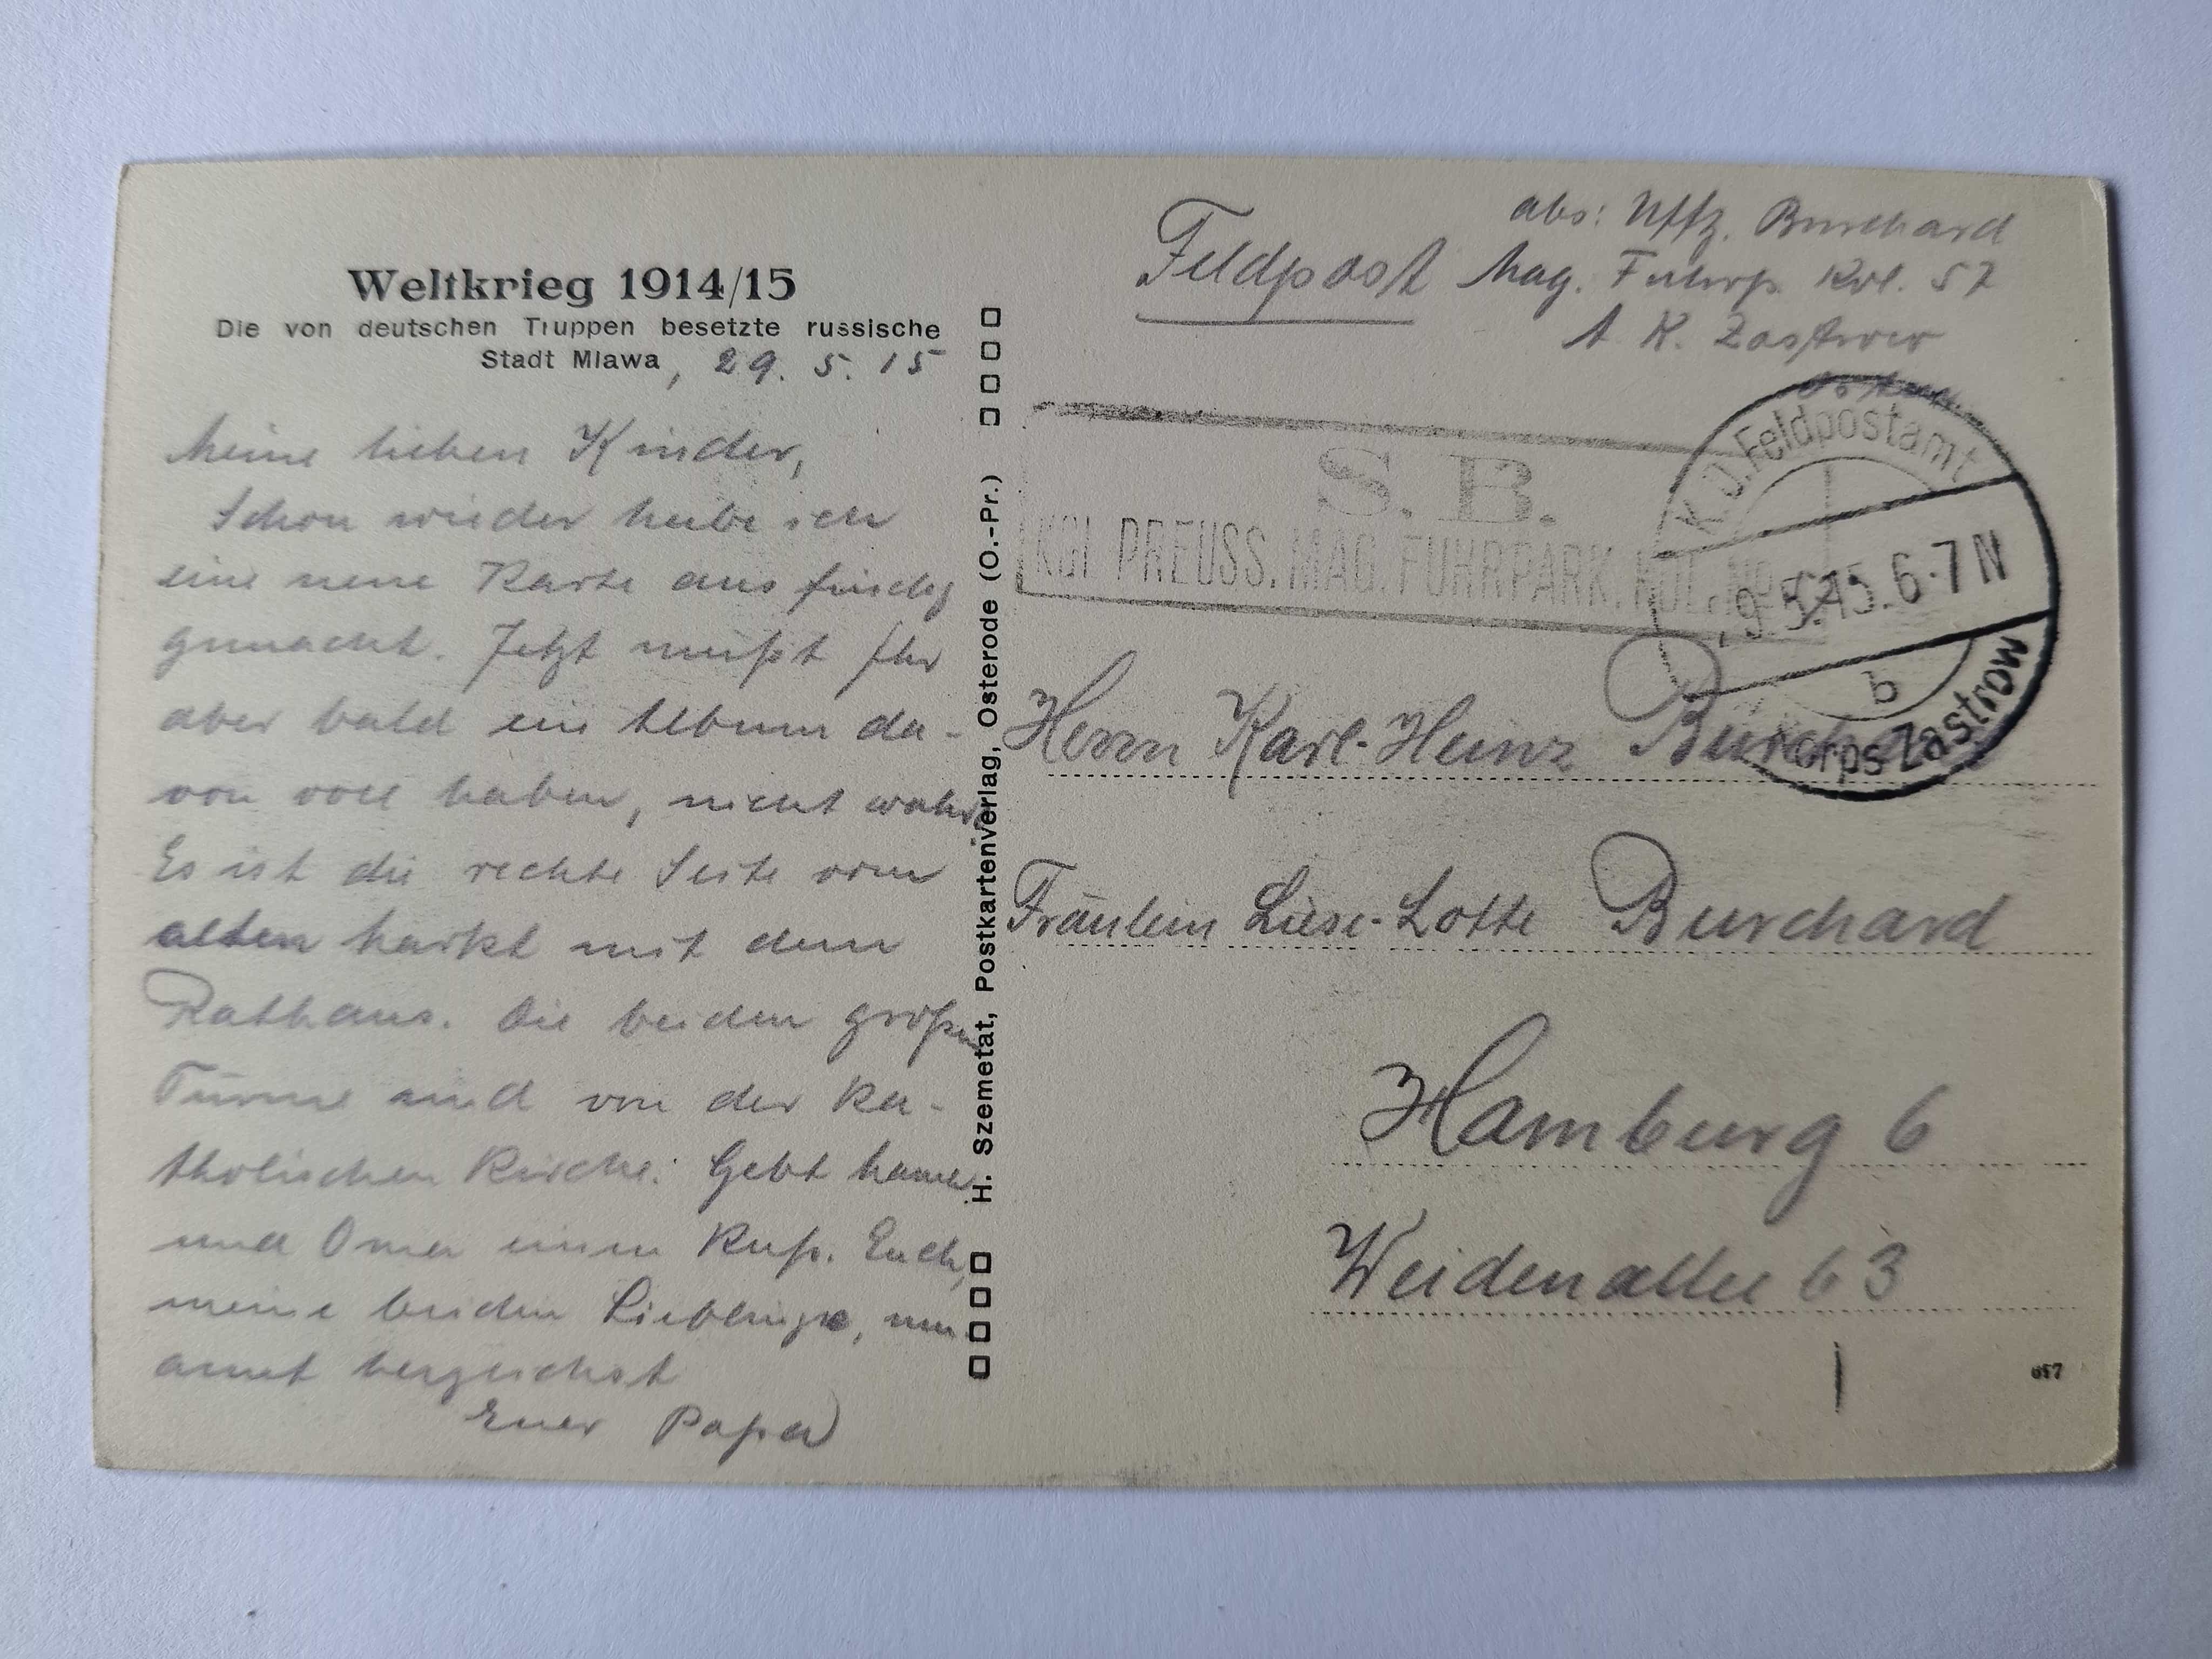 Weltkrieg 1914/15
Die von deutschen Truppen besetzte russische
Stadt Mlawa, 29. 5. 15
Meine lieben Kinder,
Schon wieder habe ich
eine neue Karte ausfindig
gemacht. Jetzt müßt Ihr
aber bald ein Album da-
von voll haben, nicht wahr?
Es ist die rechte Seite vom
alten Markt mit dem
Rathaus. Die beiden großen
Türme sind von der Ka-
tholischen Kirche. Gebt Mama
und Oma einen Kuß. Euch,
meine beiden Lieblinge, um-
armt herzlichst
Euer Papa
H. Szemetat, Postkartenverlag, Osterode (O.-Pr.)
Feldpost
abs: Uffz. Burchard
Mag. Fuhrp. Kol. 57
A. K. Zastrow
S. B.
KGL. PREUSS. MAG. FUHRPARK. KOL. No.
K. D. Feldpostamt
29.5.15. 6-7 N
b
Korps Zastrow
Herrn Karl-Heinz Burchard
Fräulein Liese-Lotte Burchard
Hamburg 6
Weidenallee 63
657